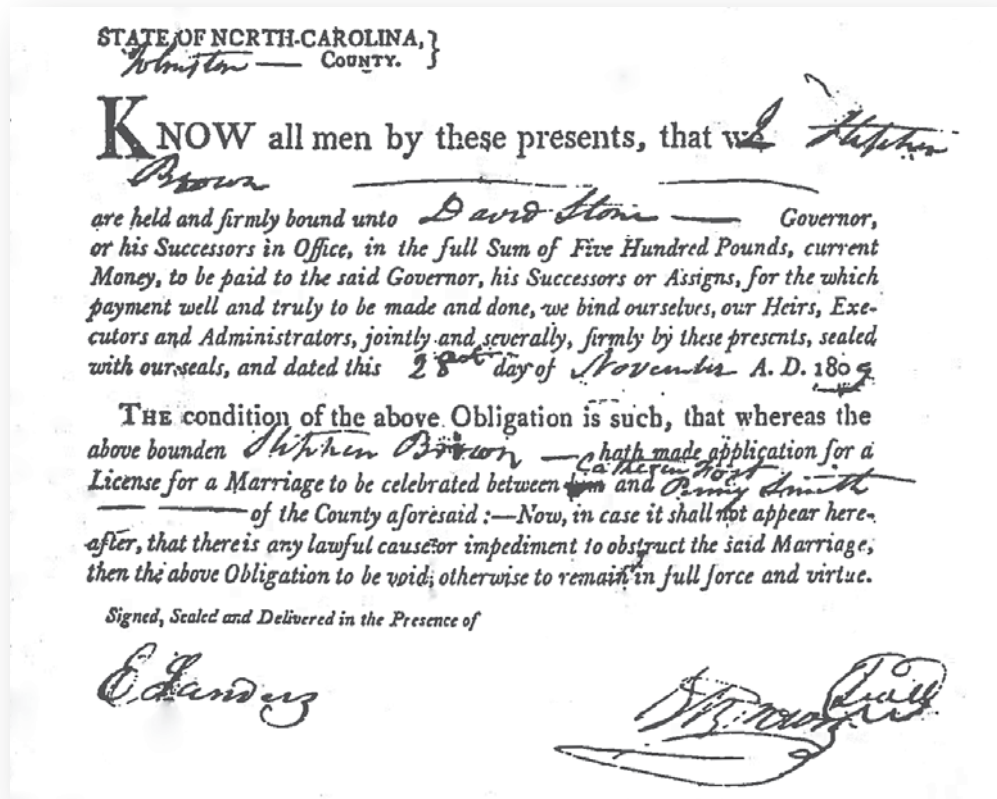 STATE OF NORTH-CAROLINA, }
Johnston — COUNTY. }
KNOW all men by these presents, that we I Stephen
Brown
are held and firmly bound unto David Stone — Governor,
or his Successors in Office, in the full Sum of Five Hundred Pounds, current
Money, to be paid to the said Governor, his Successors or Assigns, for the which
payment well and truly to be made and done, we bind ourselves, our Heirs, Exe-
cutors and Administrators, jointly and severally, firmly by these presents, sealed
with our seals, and dated this 28 day of November A. D. 1809
THE condition of the above Obligation is such, that whereas the
above bounden Stephen Brown — hath made application for a
License for a Marriage to be celebrated between him and Penny Smith
— — of the County aforesaid :—Now, in case it shall not appear here-
after, that there is any lawful cause or impediment to obstruct the said Marriage,
then the above Obligation to be void; otherwise to remain in full force and virtue.
Signed, Sealed and Delivered in the Presence of
E Sanders
S Brown Seal